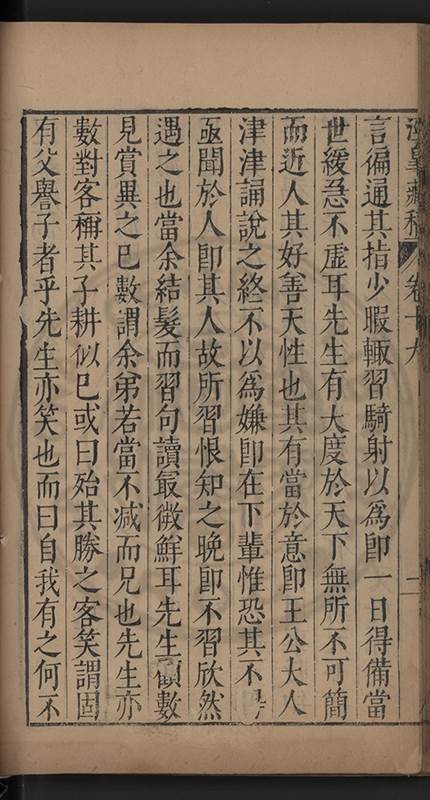 涇臯藏稿 卷十六 二
言徧通其指少暇輙習騎射以爲卽一日得備當
世緩急不虚耳先生有大度於天下無所不可簡
而近人其好善天性也其有當於意卽王公大人
津津誦說之終不以爲嫌卽在下輩惟恐其不
亟聞於人卽其人故所習恨知之晚卽不習欣然
遇之也當余結髮而習句讀最微鮮耳先生顧數
見賞異之巳數謂余弟若當不减而兄也先生亦
數對客稱其子耕似巳或曰殆其勝之客笑謂固
有父譽子者乎先生亦笑也而曰自我有之何不